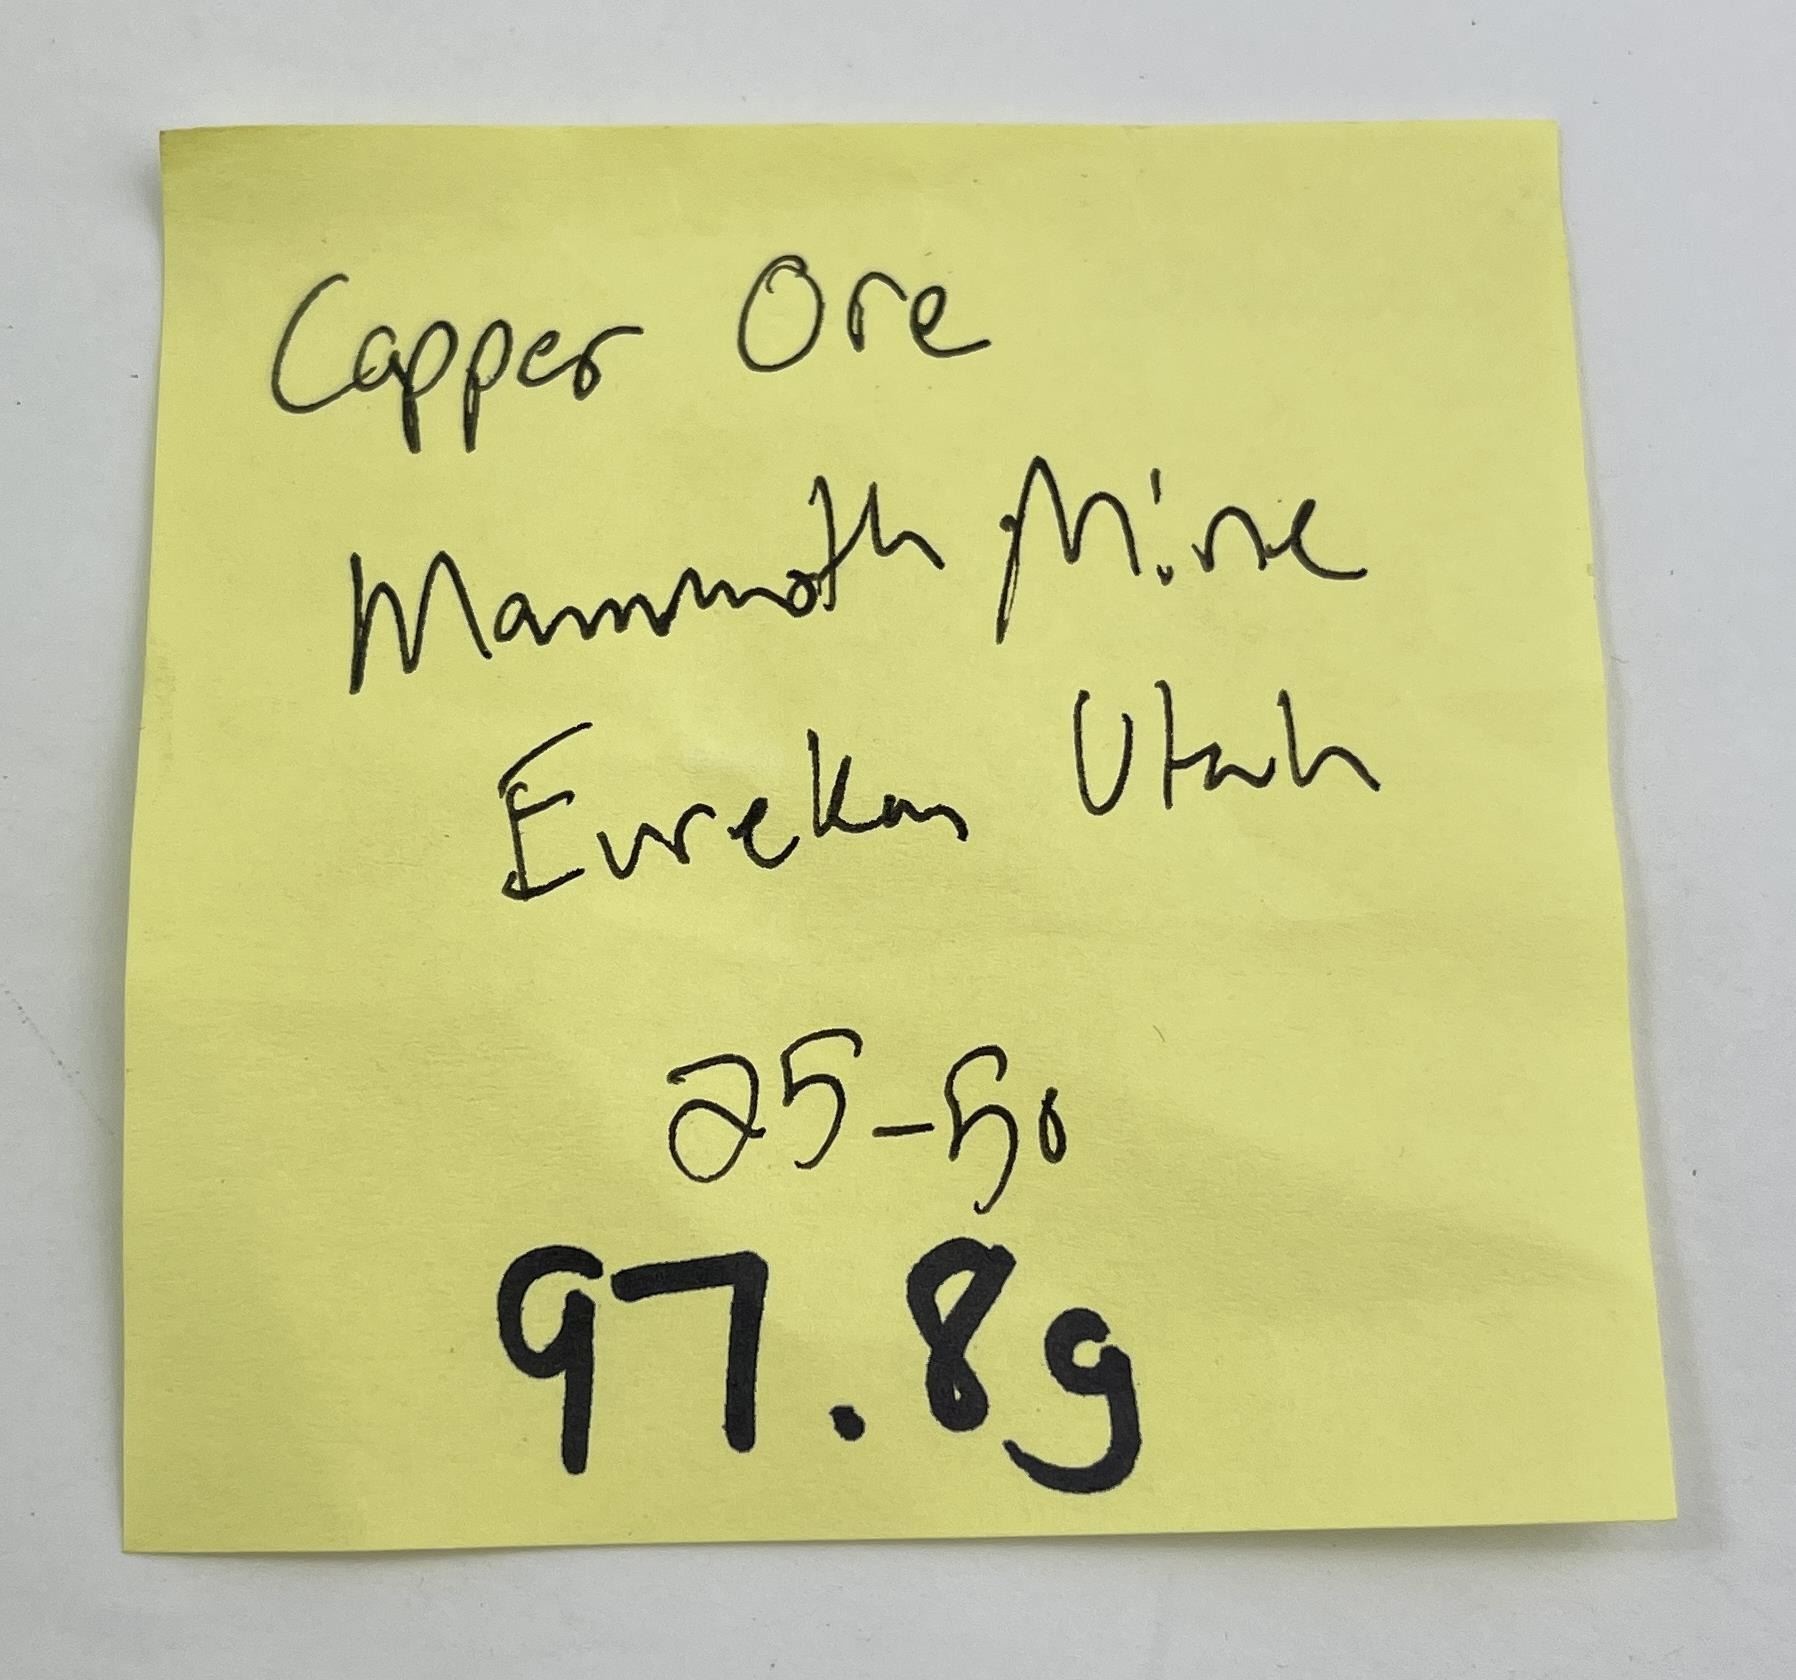 Copper Ore
Mammoth Mine
Eureka Utah
25-50
97.8g